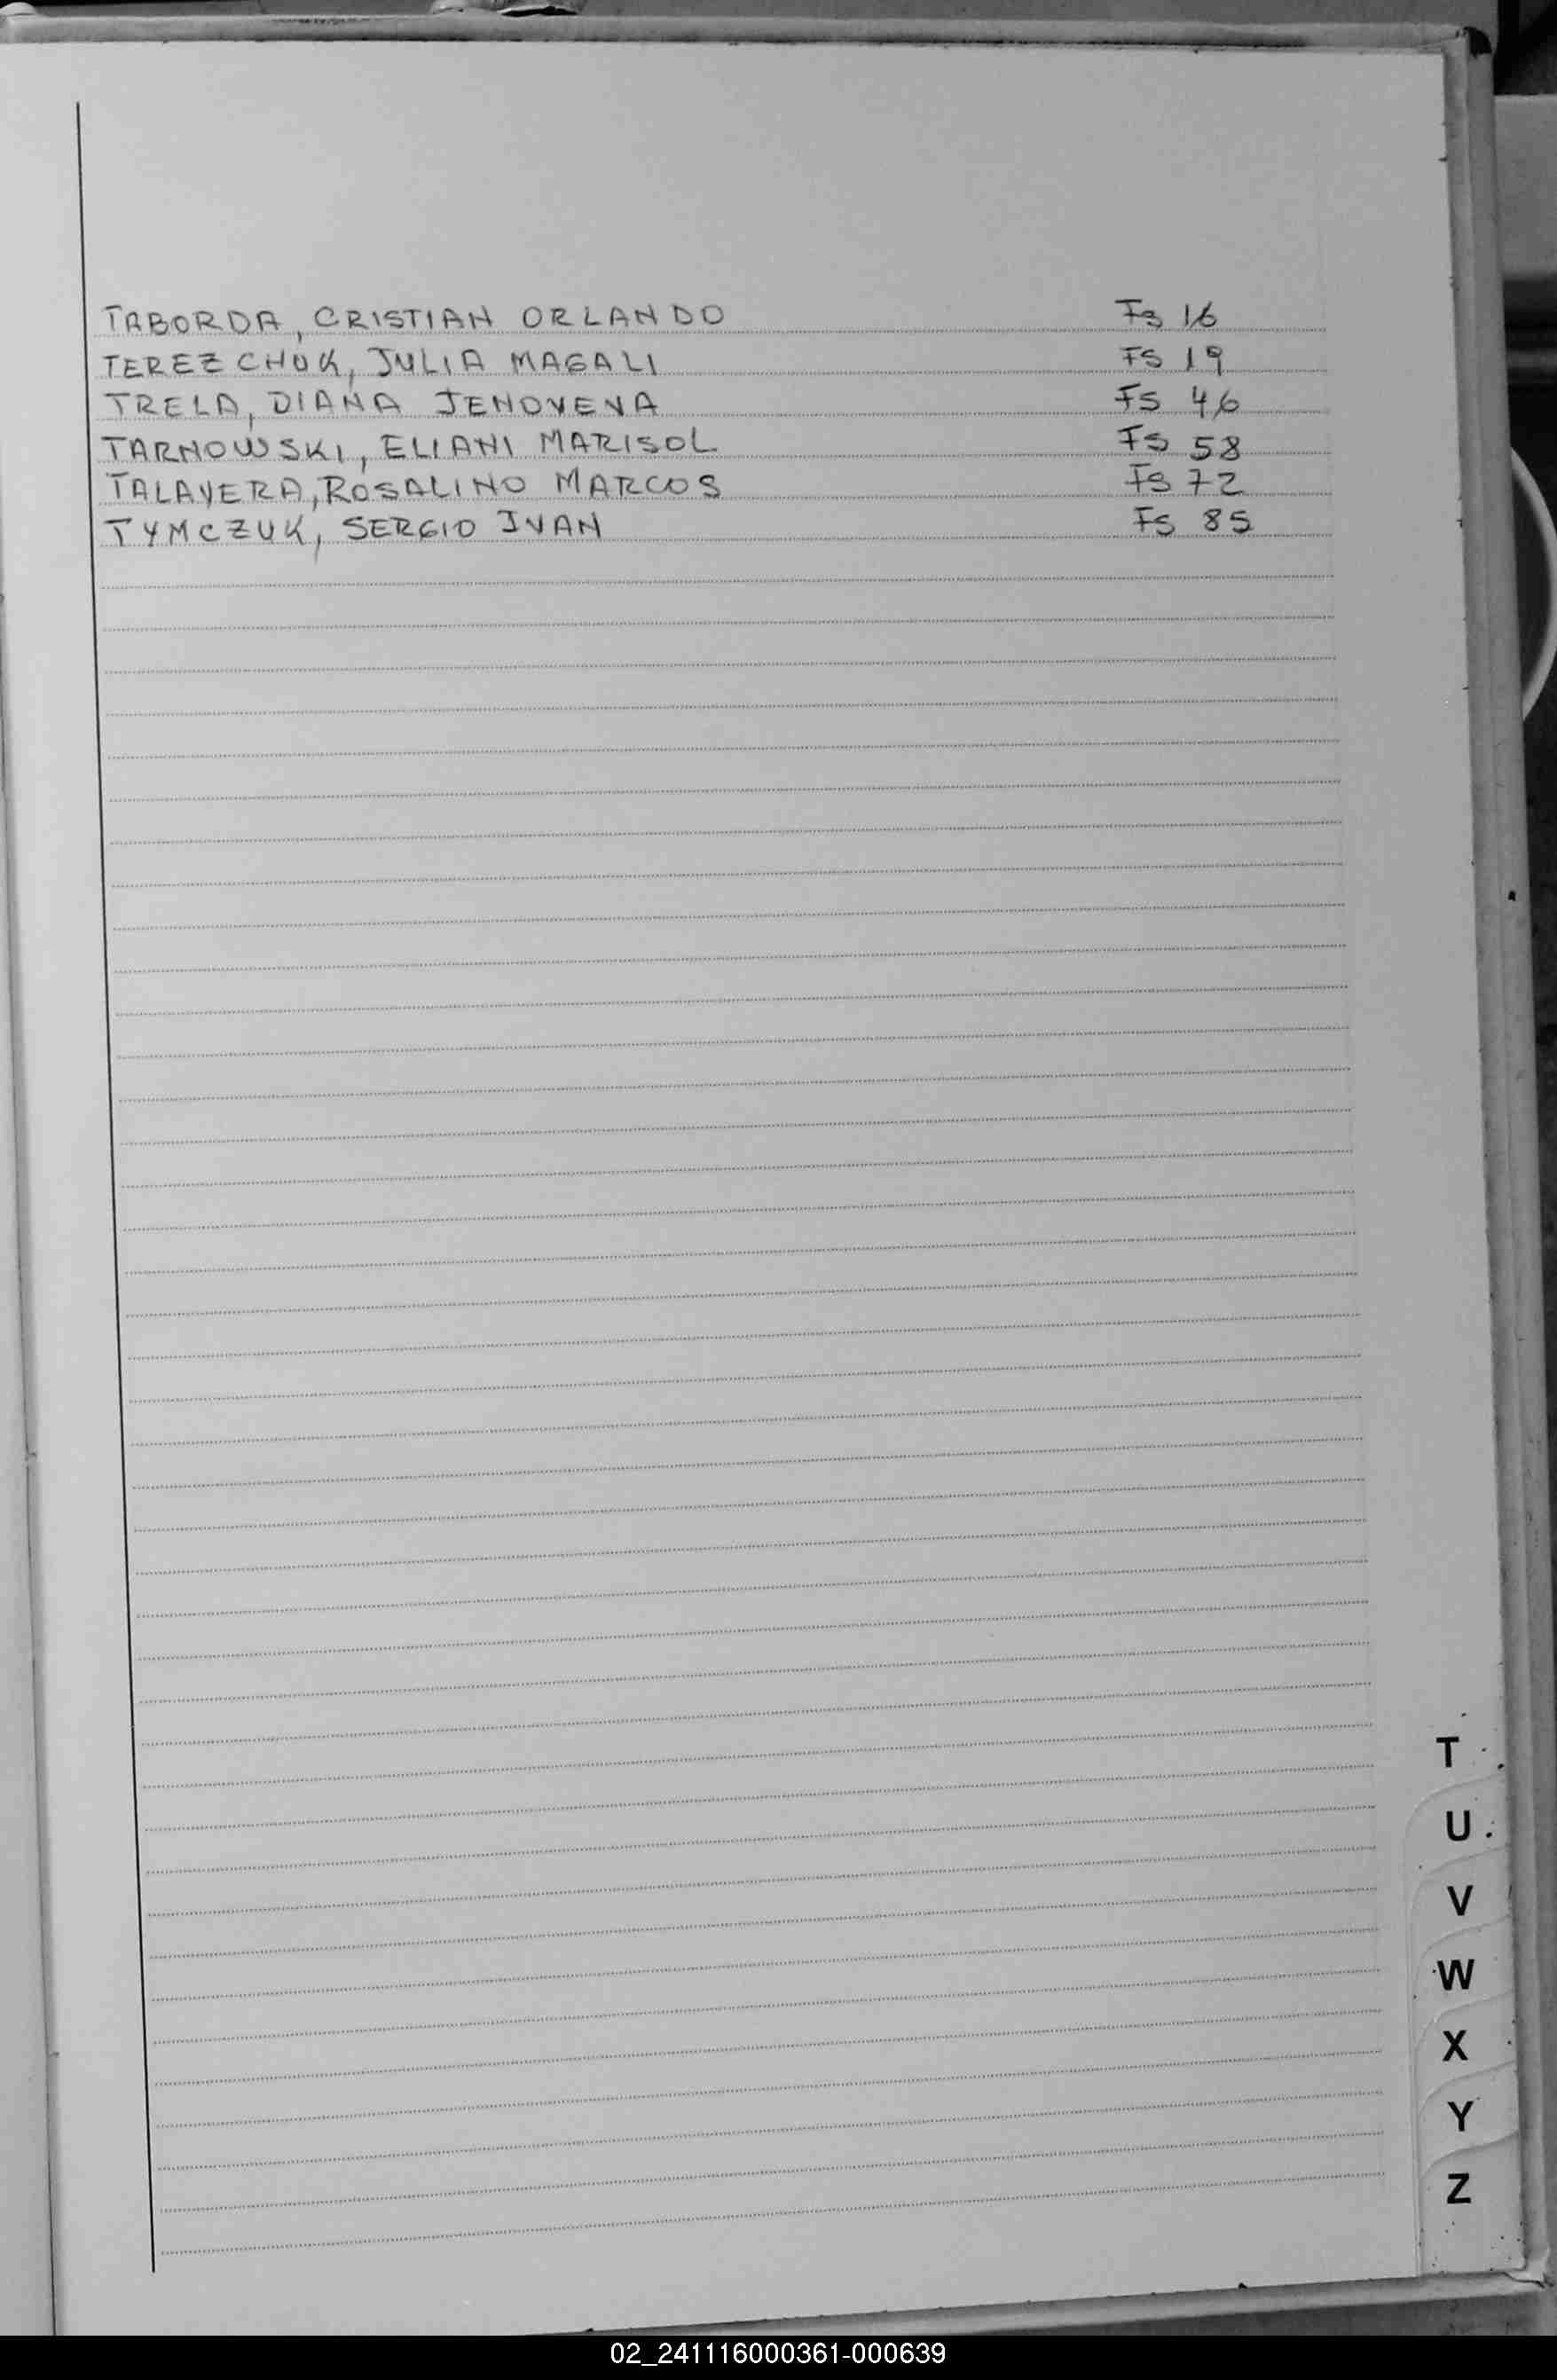 TABORDA, CRISTIAN ORLANDO Fs 16
TEREZCHUK, JULIA MAGALI Fs 19
TRELA, DIANA JENOVEVA Fs 46
TARNOWSKI, ELIANI MARISOL Fs 58
TALAVERA, ROSALINO MARCOS Fs 72
TYMCZUK, SERGIO IVAN Fs 85
T
U
V
W
X
Y
Z
02_241116000361-000639